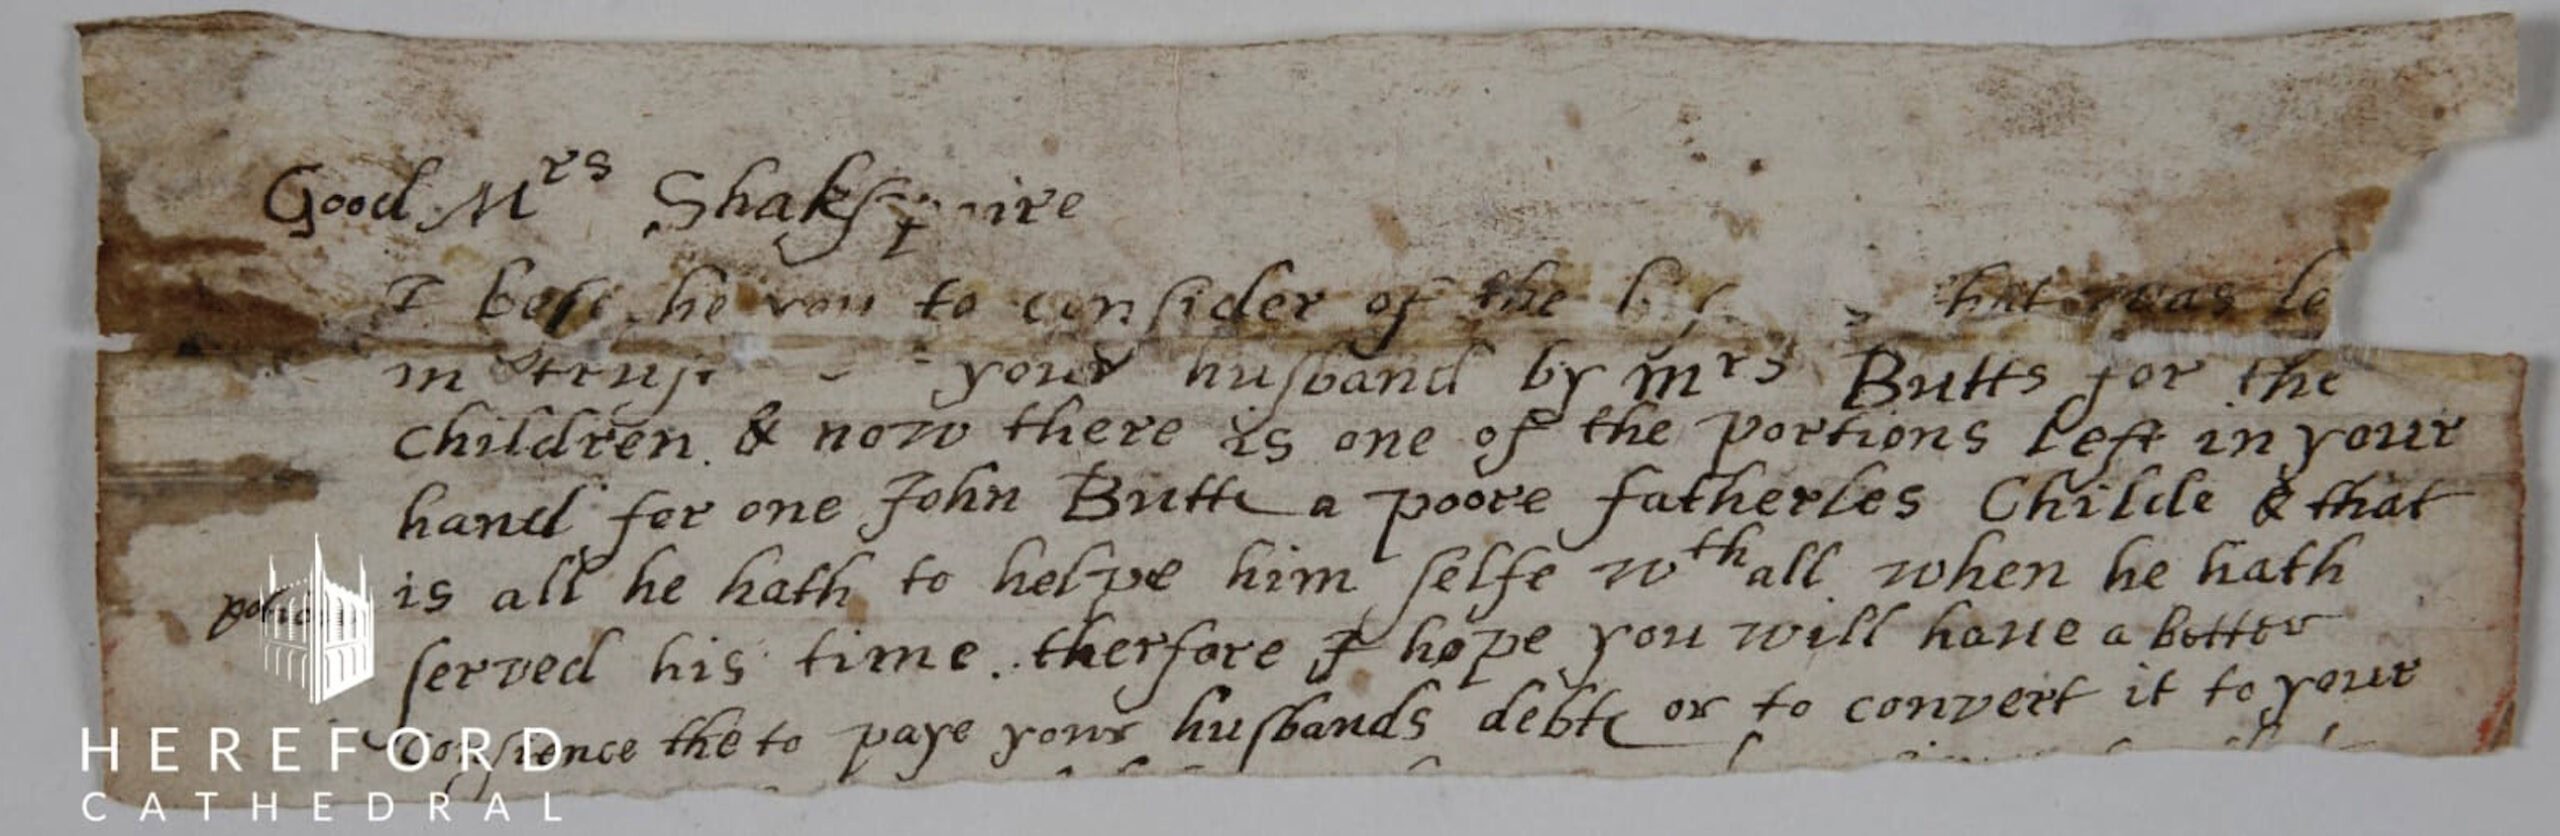 Good Mrs Shakspaire
I beseche you to consider of the that was le
in trust your husband by mrs Butts for the
children. & now there is one of the portions left in your
hand for one John Butts a poore fatherles Childe & that
is all he hath to helpe him selfe wth all when he hath
served his time. therfore I hope you will haue a better
Consience the to paye your husbands debts or to convert it to your
HEREFORD
CATHEDRAL